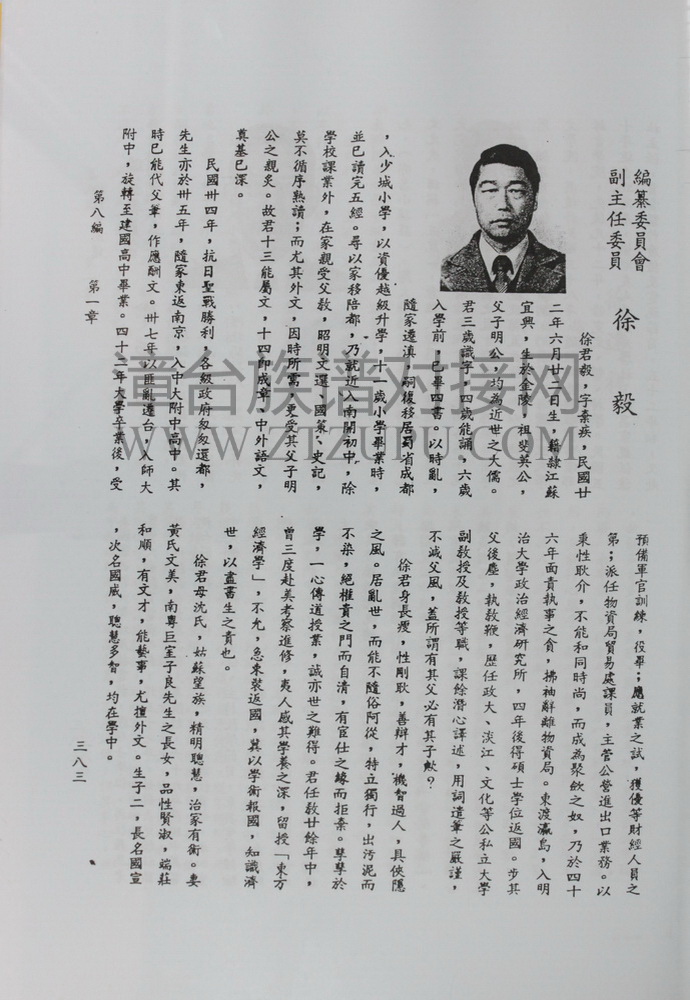 編纂委員會
副主任委員
徐毅
徐君毅，字棄疾，民國廿
二年六月廿二日生，籍隸江蘇
宜興，生於金陵，祖斐英公，
父子明公，均為近世之大儒。
君三歲識字，四歲能誦，六歲
入學前，已畢四書。以時亂，
隨家遷滇，嗣復移居蜀省成都
，入少城小學，以資優越級升學，十一歲小學畢業時，
並已讀完五經。尋以家移陪都，乃就近入南開初中，除
學校課業外，在家親受父教，昭明文選、國策、史記，
莫不循序熟讀；而尤其外文，因時所需，更受其父子明
公之親炙。故君十三能屬文，十四即成章，中外語文，
奠基已深。
民國卅四年，抗日聖戰勝利，各級政府匆匆還都，
先生亦於卅五年，隨家東返南京，入中大附中高中。其
時已能代父筆，作應酬文。卅七年以匪亂遷台，入師大
附中，旋轉至建國高中畢業。四十二年大學卒業後，受
第八編 第一章
預備軍官訓練，役畢；應就業之試，獲優等財經人員之
第；派任物資局貿易處課員，主管公營進出口業務。以
秉性耿介，不能和同時尚，而成為聚斂之奴，乃於四十
六年面責執事之貪，拂袖辭離物資局。東渡瀛島，入明
治大學政治經濟研究所，四年後得碩士學位返國。步其
父後塵，執教鞭，歷任政大、淡江、文化等公私立大學
副教授及教授等職，課餘潛心譯述，用詞遣筆之嚴謹，
不減父風，蓋所謂有其父必有其子歟？
徐君身長瘦，性剛耿，善辯才，機智過人，具俠隱
之風。居亂世，而能不隨俗阿從，特立獨行，出污泥而
不染，絕權貴之門而自清，有宦仕之緣而拒棄。孳孳於
學，一心傳道授業，誠亦世之難得。君任教廿餘年中，
曾三度赴美考察進修，夷人感其學養之深，留授「東方
經濟學」，不允，急束裝返國，冀以學術報國，知識濟
世，以盡書生之責也。
徐君母沈氏，姑蘇望族，精明聰慧，治家有術。妻
黃氏文美，南粵巨室子良先生之長女，品性賢淑，端莊
和順，有文才，能藝事，尤擅外文。生子二，長名國宣
，次名國威，聰慧多智，均在學中。
三八三
章台族谱对接网
WWW.ZTZUPU.COM